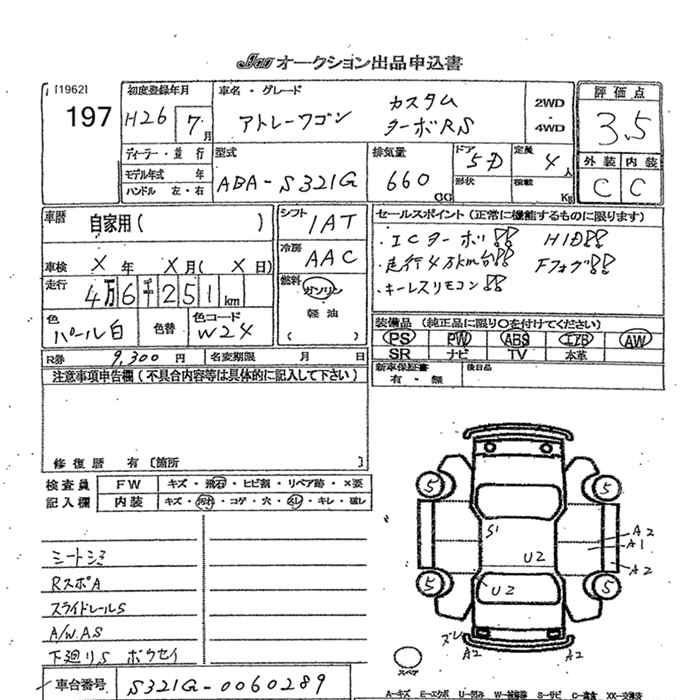 JAA オークション出品申込書
[1962]
197
初度登録年月
H26 7月
車名・グレード
アトレーワゴン
カスタム
ターボRS
2WD
4WD
評価点
3.5
外装 内装
C C
ディーラー・並行
モデル年式 年
ハンドル 左・右
型式
ABA-S321G
排気量
660 CC
ドア
5D
形状
定員
4人
積載
Kg
車歴
自家用( )
シフト
IAT
冷房
AAC
車検 X年 X月(X日)
走行
4万6千251km
燃料
ガソリン
軽油
( )
色
パール白
色替
色コード
W24
R券 9,300円 名変期限 月 日
セールスポイント(正常に機能するものに限ります)
・ICターボ!! HID!!
・走行4万km台!! Fフォグ!!
・キーレスリモコン!!
装備品 (純正品に限り○を付けてください)
PS PW ABS エアB AW
SR ナビ TV 本革
新車保証書
有・無
後日品
注意事項申告欄(不具合内容等は具体的に記入して下さい)
修復歴 有〔箇所 〕
検査員 FW キズ・飛石・ヒビ割・リペア跡・×要
記入欄 内装 キズ・汚れ・コゲ・穴・スレ・キレ・破レ
シートシミ
RスポA
スライドレールS
A/W.AS
下廻りS ボウセイ
車台番号 S321G-0060289
5 5
S1
A2
A1
U2
A2
5 5
U2
ズレ
A2 A2
スペア
A-キズ E-エクボ U-凹み W-補修跡 S-サビ C-腐食 XX-交換済